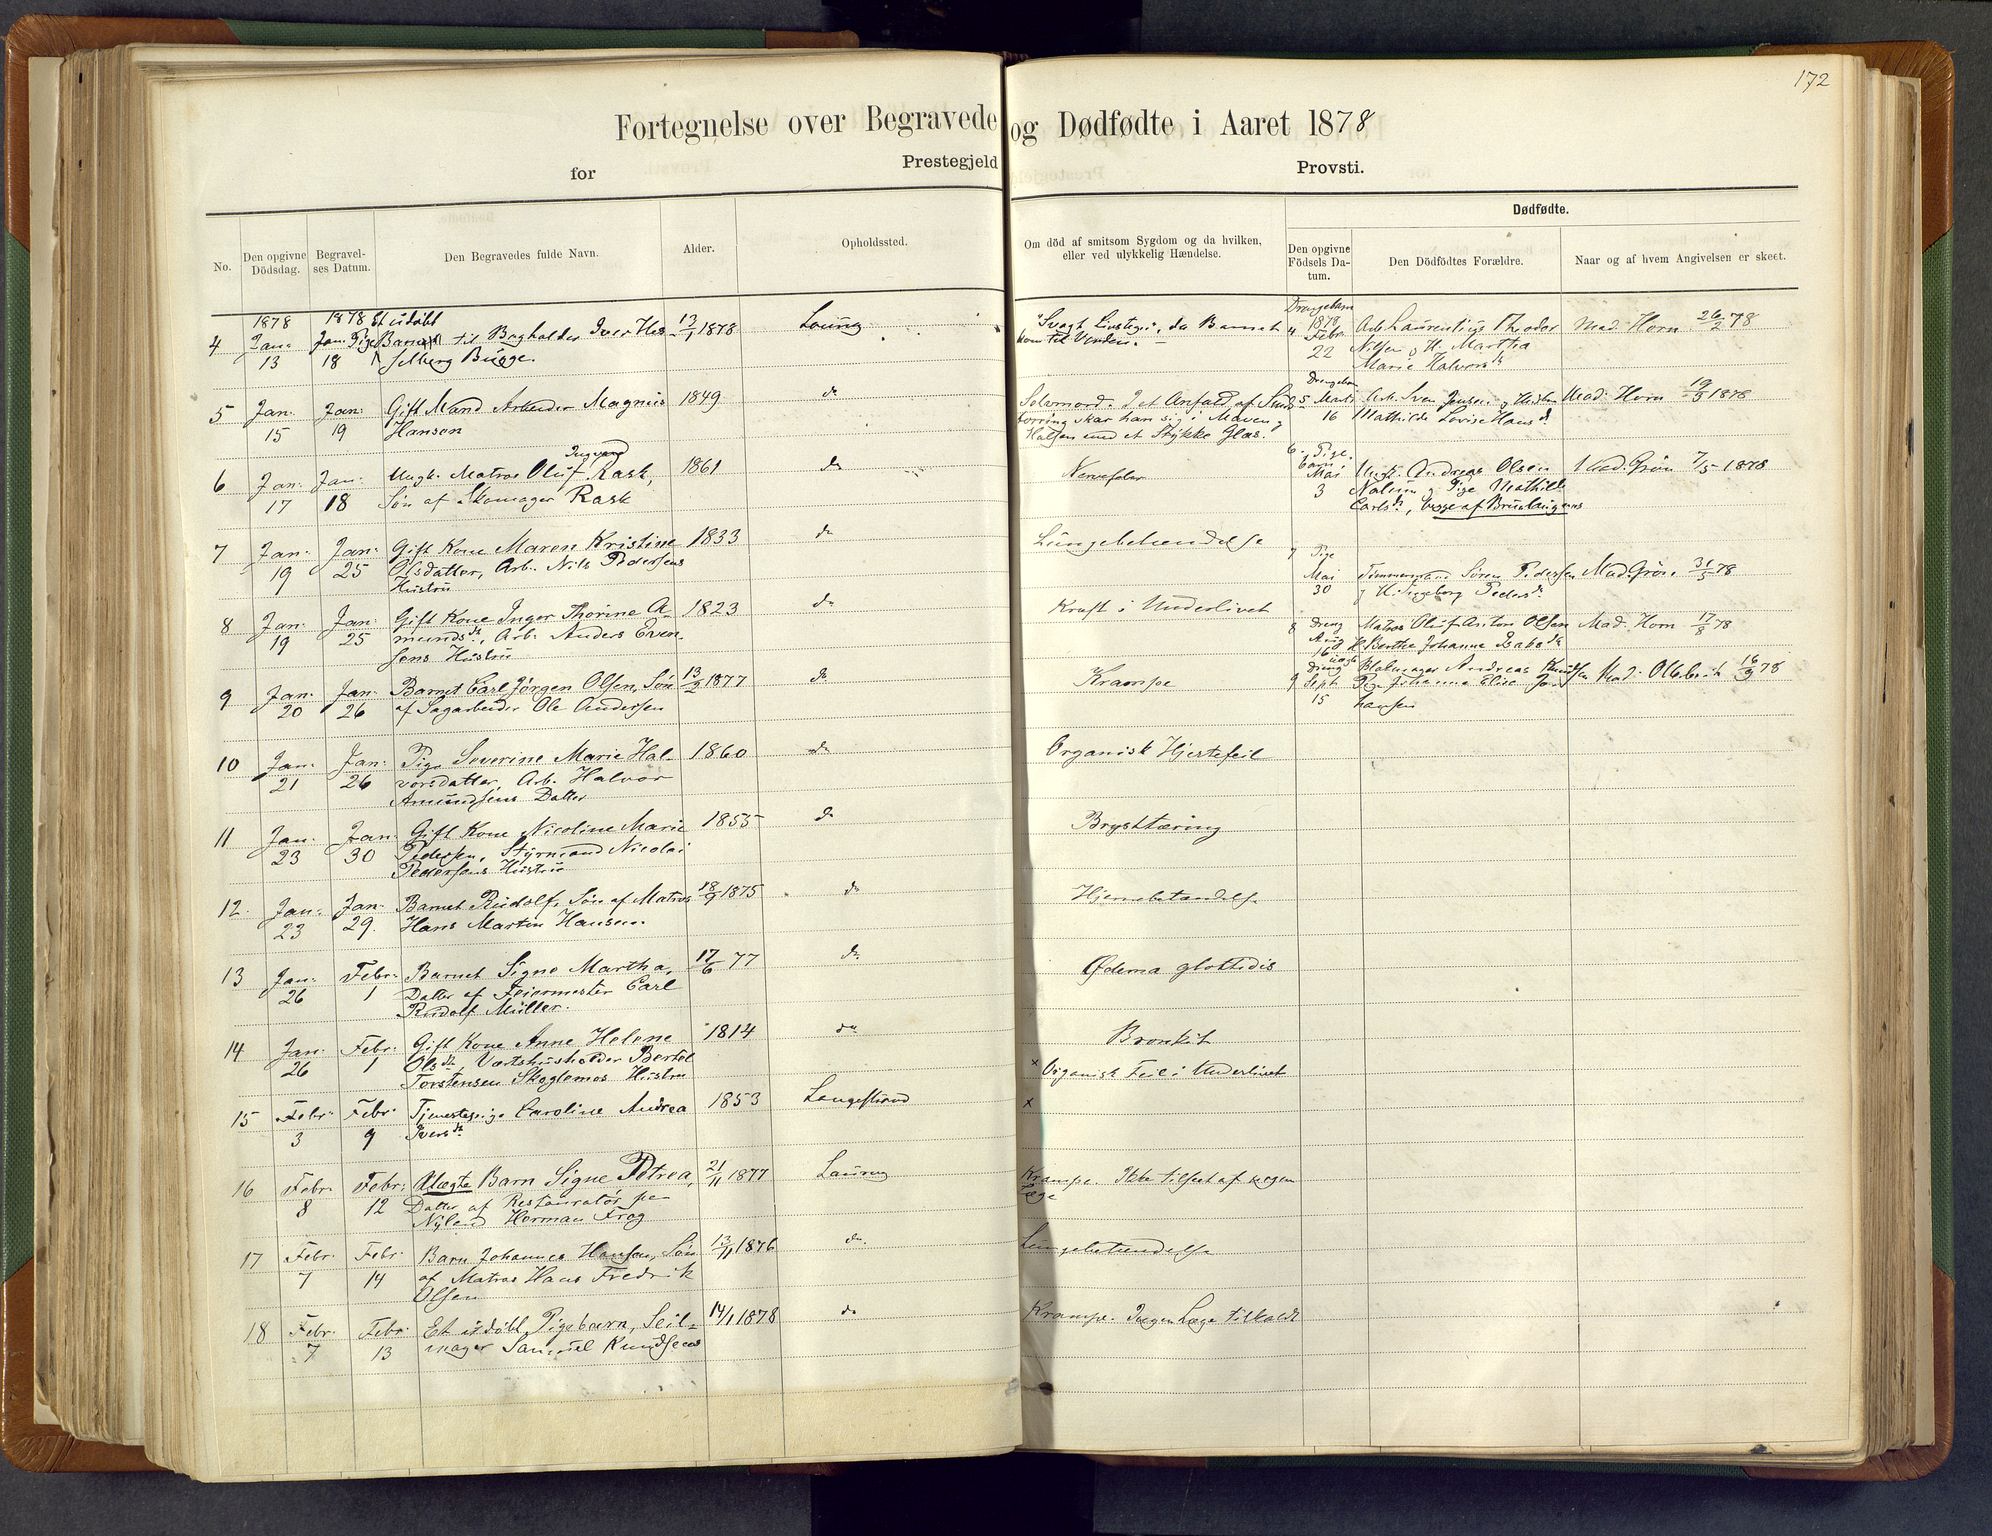 172
Fortegnelse over Begravede og Dødfødte i Aaret 1878
for Prestegjeld Provsti.
No.
Den opgivne Dödsdag.
Begravel-
ses Datum.
Den Begravedes fulde Navn.
Alder.
Opholdssted.
Om död af smitsom Sygdom og da hvilken,
eller ved ulykkelig Hændelse.
Dødfødte.
Den opgivne
Födsels Da-
tum.
Den Dödfödtes Forældre.
Naar og af hvem Angivelsen er skeet.
1878 1878 Et udøbt
4 Jan: Jan: Pige Barn til Bogholder Iver Hes- 13/1 1878 Laurvig
13 18 selberg Bugge.
5 Jan: Jan: Gift Mand Arbeider Magnus 1849 do
15 19 Hansen
Ingvard
6 Jan: Jan: Ungk. Matros Oluf Rask, 1861 do
17 18 Søn af Skomager Rask
7 Jan: Jan: Gift Kone Maren Kristine 1833 do
19 25 Olsdatter, Arb. Nils Pedersens
Hustru
8 Jan: Jan: Gift Kone Inger Thorine A- 1823 do
19 25 mundsdr, Arb. Anders Even-
sens Hustru
9 Jan: Jan: Barnet Carl Jørgen Olsen, Søn 13/2 1877 do
20 26 af Sagarbeider Ole Andersen
10 Jan: Jan: Pige Severine Marie Hal- 1860 do
21 26 vorsdatter, Arb. Halvor
Amundsens Datter
11 Jan: Jan: Gift Kone Nicoline Marie 1855 do
23 30 Pedersen, Styrmand Nicolai
Pedersens Hustru
12. Jan: Jan: Barnet Rudolf, Søn af Matros 18/9 1875 do
23 29. Hans Martin Hansen.
13 Jan: Febr: Barnet Signe Martha, 17/6 77 do
26 1 Datter af Feiermester Carl
Rudolf Müller.
14 Jan: Febr: Gift Kone Anne Helene 1814 do
26 1 Olsdr, Vertshusholder Bertel
Torstensen Skoglemos Hustru
15 Febr: Febr: Tjenestepige Caroline Andrea 1853 Langestrand
3 9 Iversdr
16 Febr: Febr: Uægte Barn Signe Petrea, 21/11 1877 Laurvig
8 12 Datter af Restauratør paa
Nyland Herman Frag
17 Febr: Febr: Barn Johannes Hansen, Søn 13/11 1876 do.
7 14 af Matros Hans Fredrik
Olsen
18 Febr: Febr: Et udøbt Pigebarn, Seil- 14/1 1878 do
7 13 mager Samuel Knudsens
"Svagt Livstegn", da Barnet
kom til Verden.
Selvmord. I et Anfald af Sinds
forvirring skar han sig i Maven og
Halsen med et Stykke Glas.
Nervefeber
Lungebetændelse
Kræft i Underlivet
Krampe
Organisk Hjertefeil
Brysttæring
Hjernebetændelse
Ødema glottidis
Bronkit
× Organisk Feil i Underlivet
×
Krampe. Ikke tilseet af nogen
Læge
Lungebetændelse
Krampe. Ingen Læge tilkaldt
Drengebarn
1878
4 Febr Arb. Laurentius Theodor Mad. Horn 26/2 78
22 Nilsen og H. Martha
Marie Halvorsdr
Drengebarn
5 Marts Arb. Sven Jensen og Hustru Mad. Horn 19/3 1878
16 Mathilde Lovise Hansdr
6. Pige-
barn
Mai Ungk. Andreas Olsen Mad. Grøn 7/5 1878
3 Nalum og Pige Mathilde
Carlsdr, begge af Brunlaugnes
7 Pige
Mai Tømmermand Søren Pedersen Mad. Grøn. 31/5 78
30 og H. Ingeborg Pedersdr
8 Dreng Matros Oluf Anton Olsen Mad. Horn 17/8 78
Aug
16 H. Berthe Johanne Isaksdr
uægte
9 Dreng Blokmager Andreas Knudsen Mad. Olebrit 16/9 78
Sept Pige Johanna Elise Jo-
15 hansen